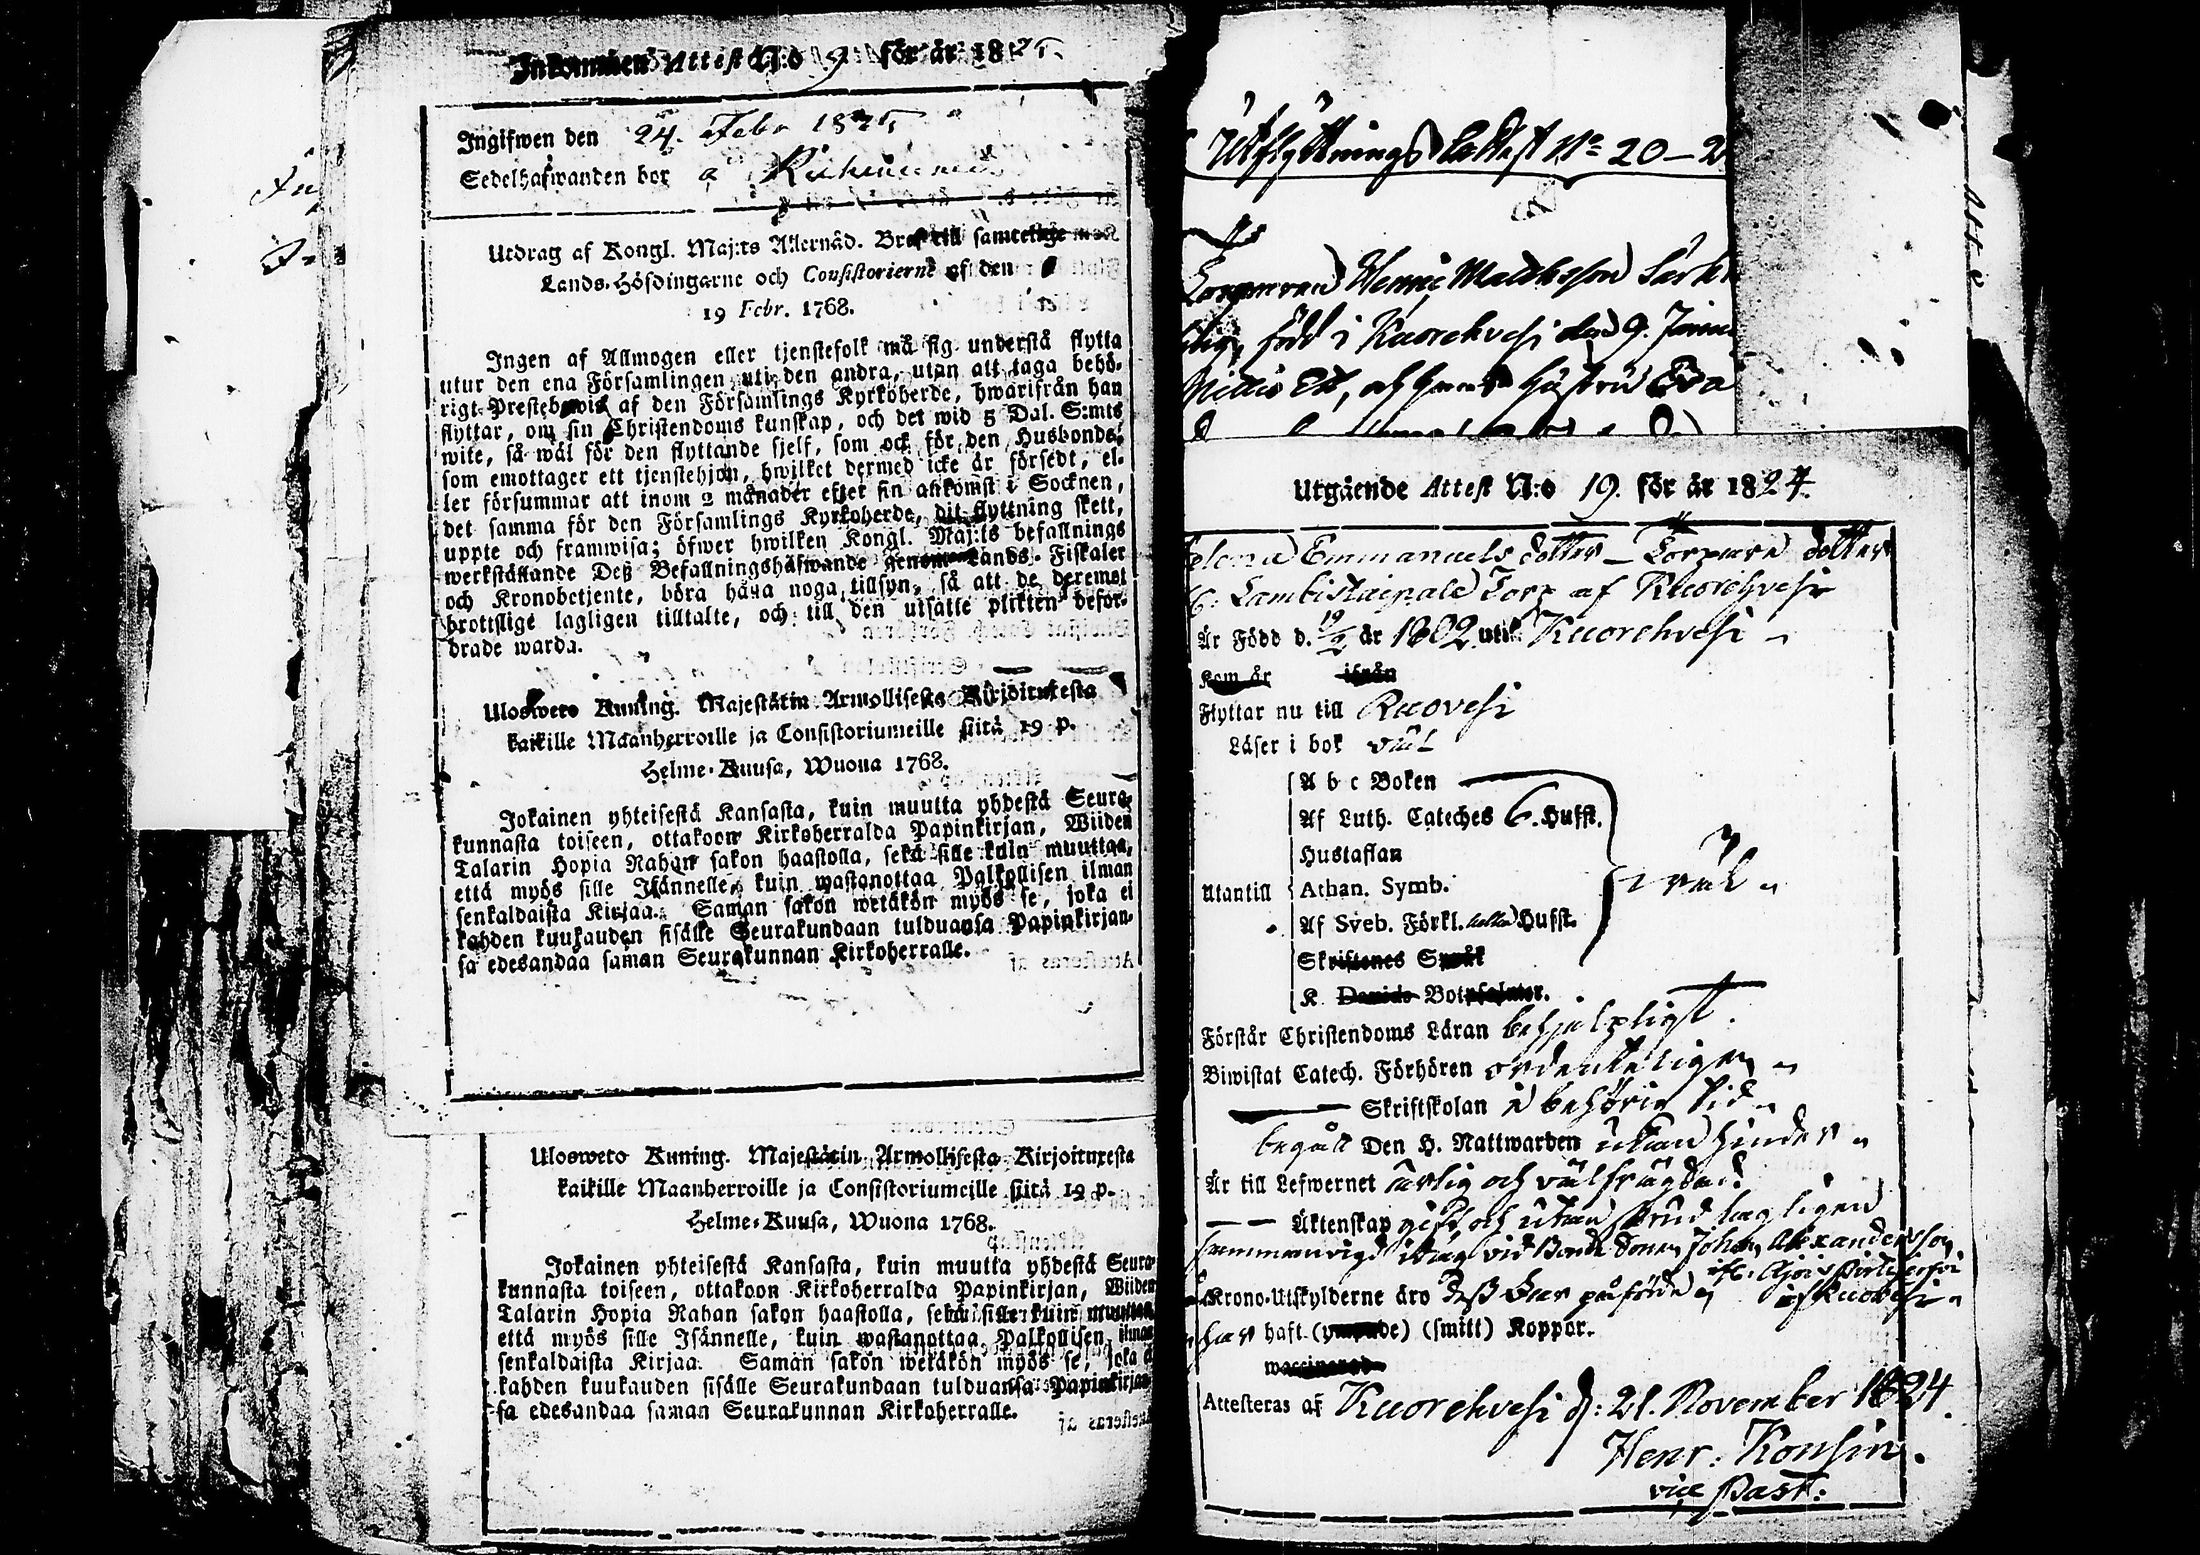 Inkommen Attest N:o 9 för år 1825
Ingifwen den 24. Febr 1825
Sedelhafwanden bor å
Utdrag af Kongl. Maj:ts Allernåd. Bref till samtelige
Lands-Höfdingarne och Consistorierne af den
19 Febr. 1768.
Ingen af Allmogen eller tjenstefolk må sig understå flytta
utur den ena Församlingen uti den andra, utan att taga behö-
rigt Prestebewis af den Församlings Kyrkoherde, hwarifrån han
flyttar, om sin Christendoms kunskap, och det wid 5 Dal. S:mts
wite, så wäl för den flyttande sjelf, som ock för den Husbonde,
som emottager ett tjenstehjon, hwilket dermed icke är försedt, el-
ler försummar att inom 2 månader efter sin ankomst i Socknen,
det samma för den Församlings Kyrkoherde, dit flyttning skett,
uppte och framwisa; öfwer hwilken Kongl. Maj:ts befallnings
werkställande Deß Befallningshafwande genom Lands-Fiskaler
och Kronobetjente, böra hafwa noga tillsyn, så att de deremot
brottslige lagligen tilltalte, och till den utsatte plikten befor-
drade warda.
Ulosweto Kuning. Majestätin Armollisesta Kirjoituxesta
kaikille Maanherroille ja Consistoriumeille siitä 19 p.
Helme-Kuusa, Wuona 1768.
Jokainen yhteisestä Kansasta, kuin muutta yhdestä Seura-
kunnasta toiseen, ottakoon Kirkoherralda Papinkirjan, Wiiden
Talarin Hopia Rahan sakon haastolla, sekä sille kuin muuttaa,
että myös sille Isännelle, kuin wastanottaa Palkollisen ilman
senkaldaista Kirjaa. Saman sakon wetäkön myös se, joka ei
kahden kuukauden sisälle Seurakundaan tulduansa Papinkirjan-
sa edesandaa saman Seurakunnan Kirkoherralle.
Ulosweto Kuning. Majestätin Armollisesta Kirjoituxesta
kaikille Maanherroille ja Consistoriumeille siitä 19 p.
Helme-Kuusa, Wuona 1768.
Jokainen yhteisestä Kansasta, kuin muutta yhdestä Seura-
kunnasta toiseen, ottakoon Kirkoherralda Papinkirjan, Wiiden
Talarin Hopia Rahan sakon haastolla, sekä sille kuin muuttaa,
että myös sille Isännelle, kuin wastanottaa Palkollisen ilman
senkaldaista Kirjaa. Saman sakon wetäkön myös se, joka ei
kahden kuukauden sisälle Seurakundaan tulduansa Papinkirjan-
sa edesandaa saman Seurakunnan Kirkoherralle.
Utflyttnings Attest No 20-2
Henric Matthsson
född i Kuorehvesi den 9. Janu
och hans Hustru Eva
Utgående Attest N:o 19. för år 1824.
Emmanuels dotter - Torpare dotter
Torp af Kuorehvesi
Är Född d. 19/2 år 1802 uti Kuorehvesi
Kom år ifrån
Flyttar nu till Ruovesi
Läser i bok väl
A b c Boken
Af Luth. Cateches 6. Hufst.
Hustaflan
Utantill Athan. Symb. väl
Af Sveb. Förkl. alla Hufst.
Skriftenes Språk
K. Davids Botpsalmer.
Förstår Christendoms Läran behjelpligt.
Biwistat Catech. Förhören ordenteligen
Skriftskolan i behörig tid
begått Den H. Nattwarden utan hinder
Är till Lefwernet ärlig och välfrägdad.
Äktenskap gift och utan lagligen
sammanvigd idag vid Bonde Sonen Johan Alexandersson
Krono-Utskylderne äro deß Far påförde af Ruovesi
har haft (ympade) (smitt) Koppor.
waccinerad
Attesteras af Kuorehvesi d: 21. November 1824.
Henr: Konsin.
vice Past: